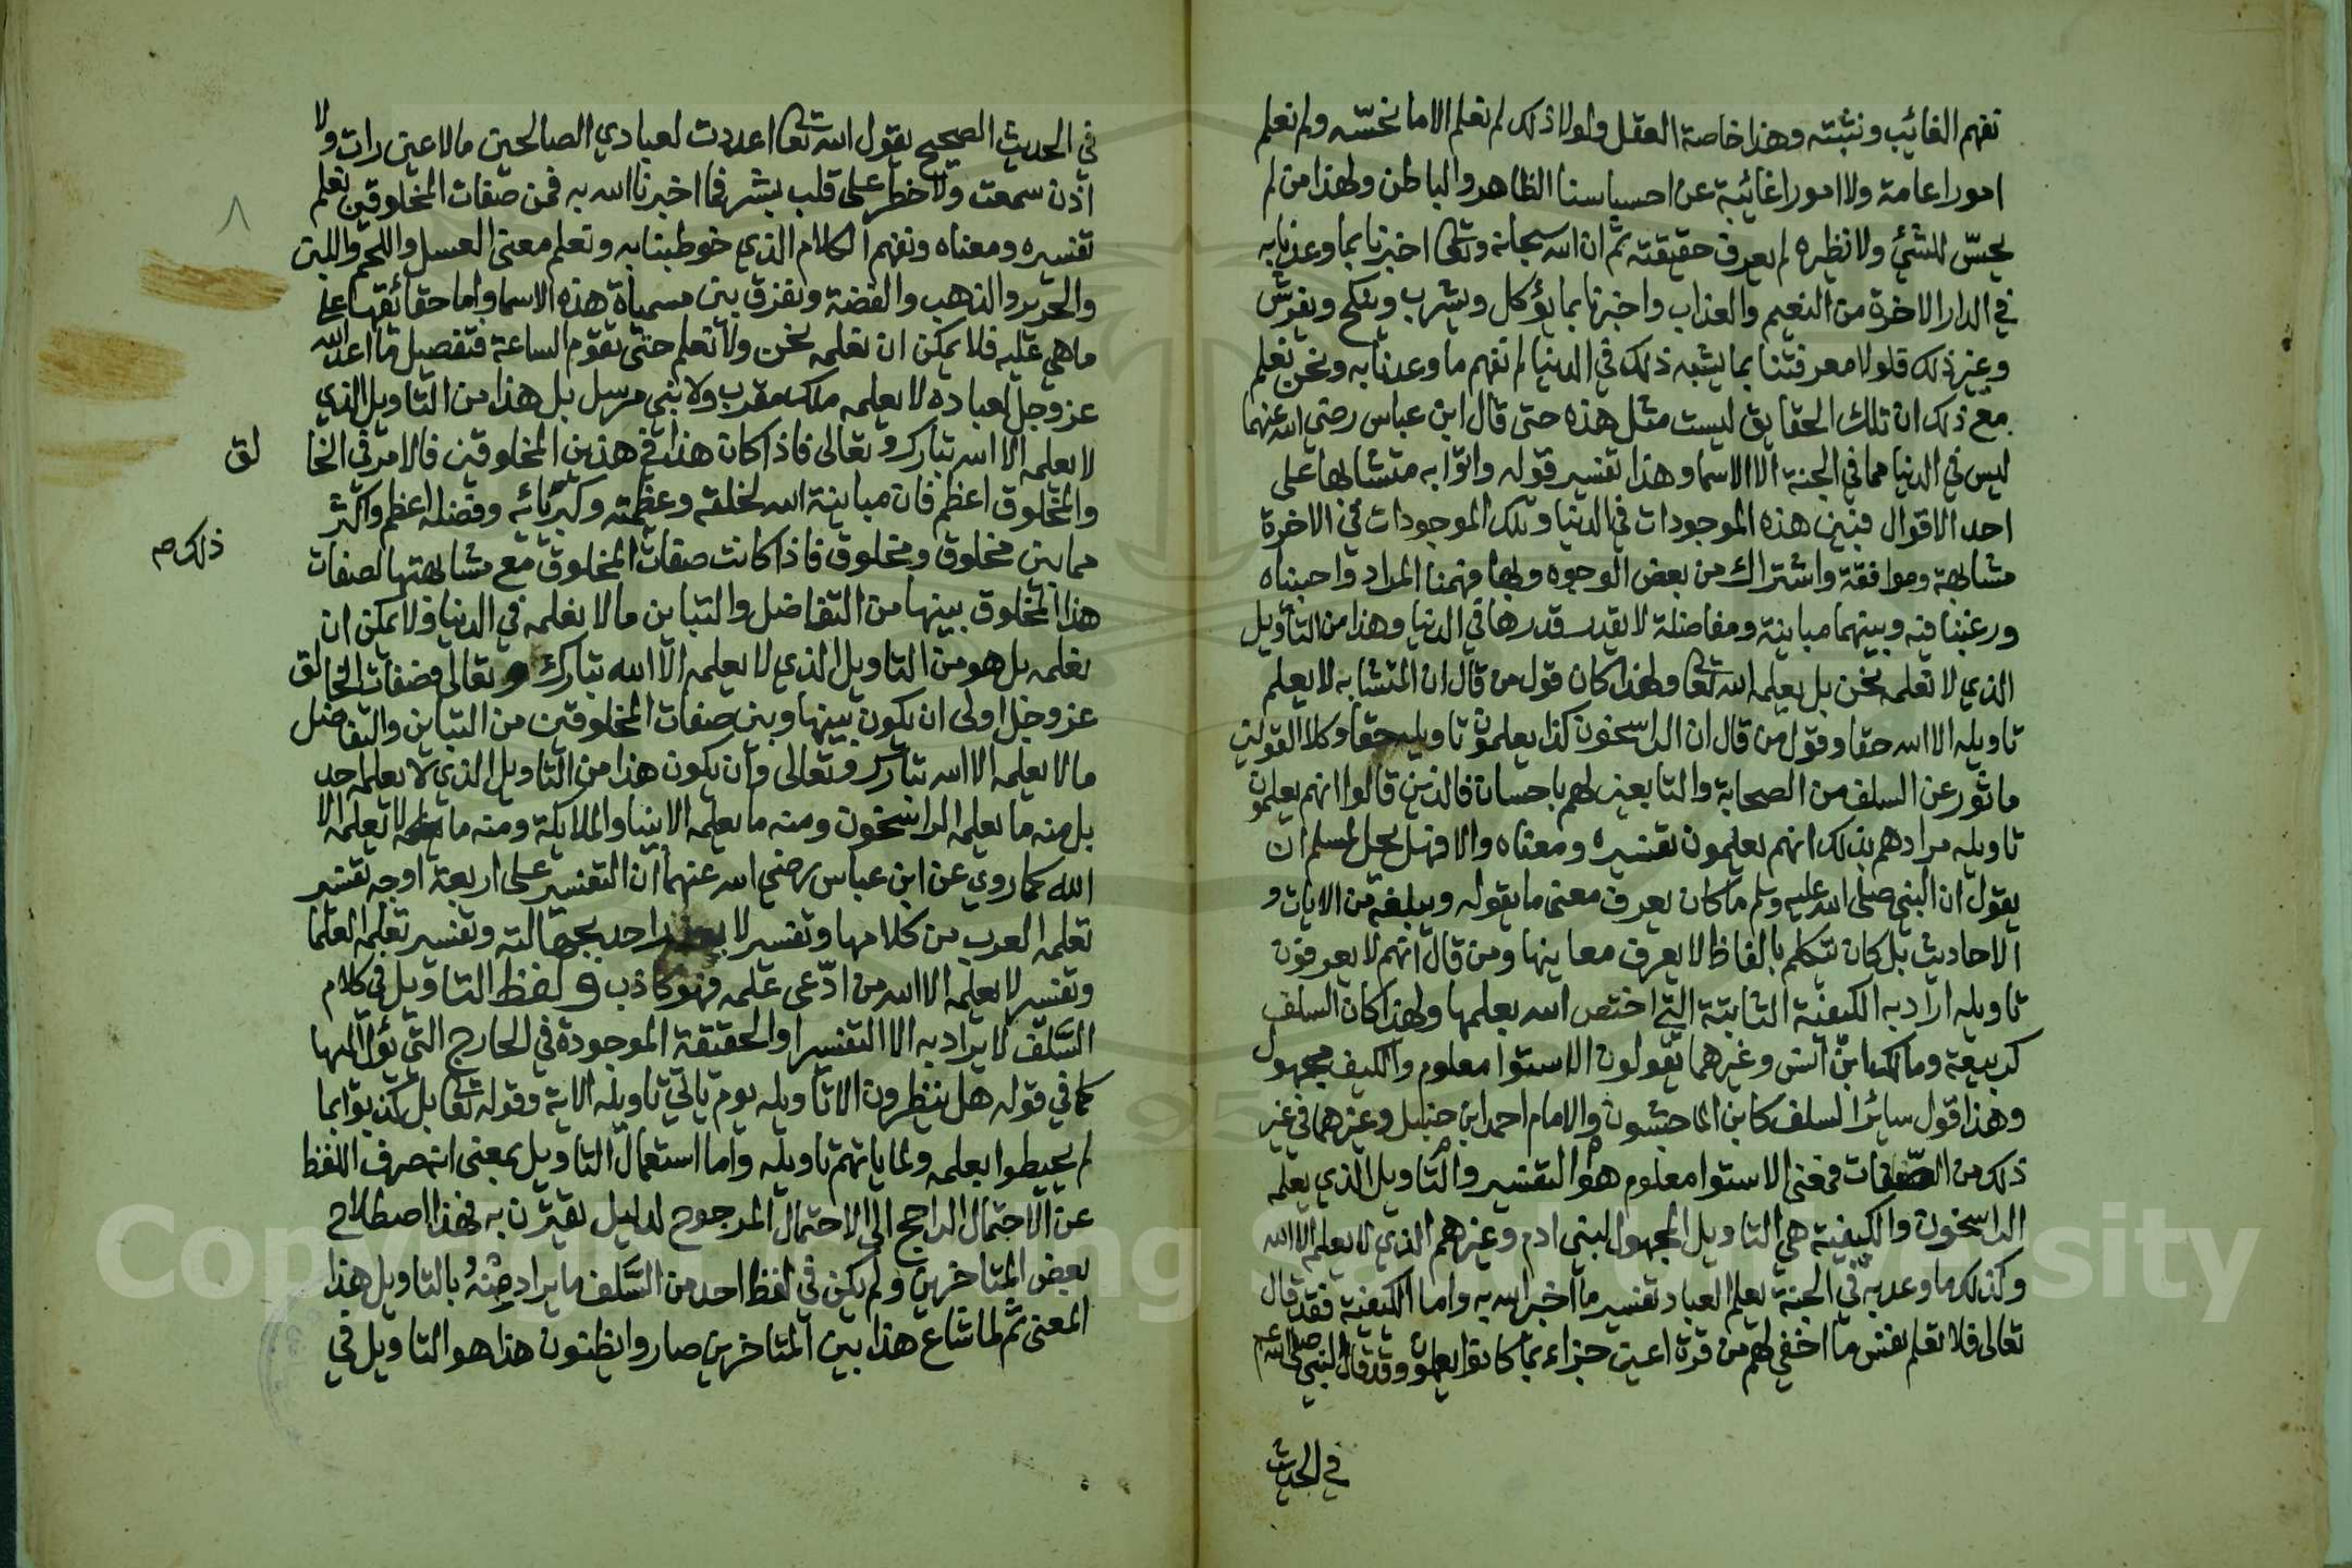 نفهم الغائب ونثبته وهذا خاصة العقل ولولا ذلك لم نعلم الا ما نحسّه ولم نعلم
امورا عامة ولا امورا غائبة عن احسياسنا الظاهر والباطن ولهذا من لم
يحسّ للشيء ولا نظيره لم يعرف حقيقته ثم ان الله سبحانه وتعالى اخبرنا بما وعدنا به
في الدار الاخرة من النعيم والعذاب واخبرنا بما يؤكل ويشرب وينكح ويفرش
وغير ذلك فلولا معرفتنا بما يشبه ذلك في الدنيا لم نفهم ما وعدنا به ونحن نعلم
مع ذلك ان تلك الحقايق ليست مثل هذه حتى قال ابن عباس رضي الله عنهما
ليس في الدنيا مما في الجنة الا الاسما وهذا تفسير قوله واتوا به متشابها على
احد الاقوال فبين هذه الموجودات في الدنيا وتلك الموجودات في الاخرة
مشابهة وموافقة واشتراك من بعض الوجوه ولهذا فهمنا المراد واحببناه
ورغبنا فيه وبينهما مباينة ومفاضلة لا يقدر قدرها في الدنيا وهذا من التاويل
الذي لا نعلمه نحن بل يعلمه الله تعالى ولهذا كان قول من قال ان المتشابه لا يعلم
تاويله الا الله حقا وقول من قال ان الراسخون كذا يعلمون تاويله حقا وكلا القولين
ماثور عن السلف من الصحابة والتابعين لهم باحسان فالذين قالوا انهم يعلمون
تاويله مرادهم بذلك انهم يعلمون تفسيره ومعناه والا فهل يحل لمسلم ان
يقول ان النبي صلى الله عليه وسلم ما كان يعرف معنى ما يقوله ويبلغه من الايات و
الاحاديث بل كان يتكلم بالفاظ لا يعرف معاينها ومن قال انهم لا يعرفون
تاويله اراد به الكيفية الثابتة التي اختص الله بعلمها ولهذا كان السلف
كربيعة ومالك ابن انس وغيرهما يقولون الاستوا معلوم والكيف مجهول
وهذا قول سائر السلف كابن الماجشون والامام احمد ابن حنبل وغيرهما في غير
ذلك من الصفات فمعنى الاستوا معلوم هو التفسير والتاويل الذي يعلمه
الراسخون والكيفية هي التاويل المجهول لبني ادم وغيرهم الذي لا يعلمه الا الله
وكذلك ما وعد به في الجنة يعلم العباد تفسير ما اخبر الله به واما الكيفية فقد قال
تعالى فلا تعلم نفس ما اخفي لهم من قرة اعين جزاء بما كانوا يعملون وقد قال النبي صلى الله عليه وسلم
في الحديث
في الحديث الصحيح يقول الله تعالى اعددت لعبادي الصالحين مالا عين رات ولا
اذن سمعت ولا خطر على قلب بشر فما اخبرنا الله به فمن صفات المخلوقين نعلم
تفسيره ومعناه ونفهم الكلام الذي خوطبنا به ونعلم معنى العسل واللحم واللبن
والحرير والذهب والفضة ونفرق بين مسمياة هذه الاسما واما حقائقها على
ما هي عليه فلا يمكن ان نعلمه نحن ولا نعلم حتى تقوم الساعة فتفصيل ما اعد الله
عز وجل لعباده لا يعلمه ملك مقرب ولا نبي مرسل بل هذا من التاويل الذي
لا يعلمه الا الله تبارك وتعالى فاذا كان هذا في هذين المخلوقين فالامر في الخا لق
والمخلوق اعظم فان مباينة الله لخلقه وعظمته وكبريائه وفضله اعظم واكثر
مما بين مخلوق ومخلوق فاذا كانت صفات المخلوق مع مشابهتها لصفات
ذلك صح
هذا المخلوق بينها من التفاضل والتباين ما لا نعلمه في الدنيا ولا يمكن ان
نعلمه بل هو من التاويل الذي لا يعلمه الا الله تبارك وتعالى فصفات الخالق
عز وجل اولى ان يكون بينها وبين صفات المخلوقين من التباين والتفاضل
ما لا يعلمه الا الله تبارك وتعالى وان يكون هذا من التاويل الذي لا يعلمه احد
بل منه ما يعلمه الراسخون ومنه ما يعلمه الانبيا والملايكة ومنه ما لا يعلمه الا
الله كما روي عن ابن عباس رضي الله عنهما ان التفسير على اربعة اوجه تفسير
تعلمه العرب من كلامها وتفسير لا يعذر احد بجهالته وتفسير تعلمه العلما
وتفسير لا يعلمه الا الله من ادّعى علمه فهو كاذب ولفظ التاويل في كلام
السّلف لا يراد به الا التفسير او الحقيقة الموجودة في الخارج التي يؤل اليها
كما في قوله هل ينظرون الا تاويله يوم ياتي تاويله الاية وقوله تعالى بل كذبوا بما
لم يحيطوا بعلمه ولما ياتهم تاويله واما استعمال التاويل بمعنى انه صرف اللفظ
عن الاحتمال الراجح الى الاحتمال المرجوح لدليل يقترن به فهذا اصطلاح
بعض المتاخرين ولم يكن في لفظ احد من السّلف ما يراد منهُ بالتاويل هذا
المعنى ثم لما شاع هذا بين المتاخرين صاروا يظنون هذا هو التاويل في
٨
Copyright © King Saud University